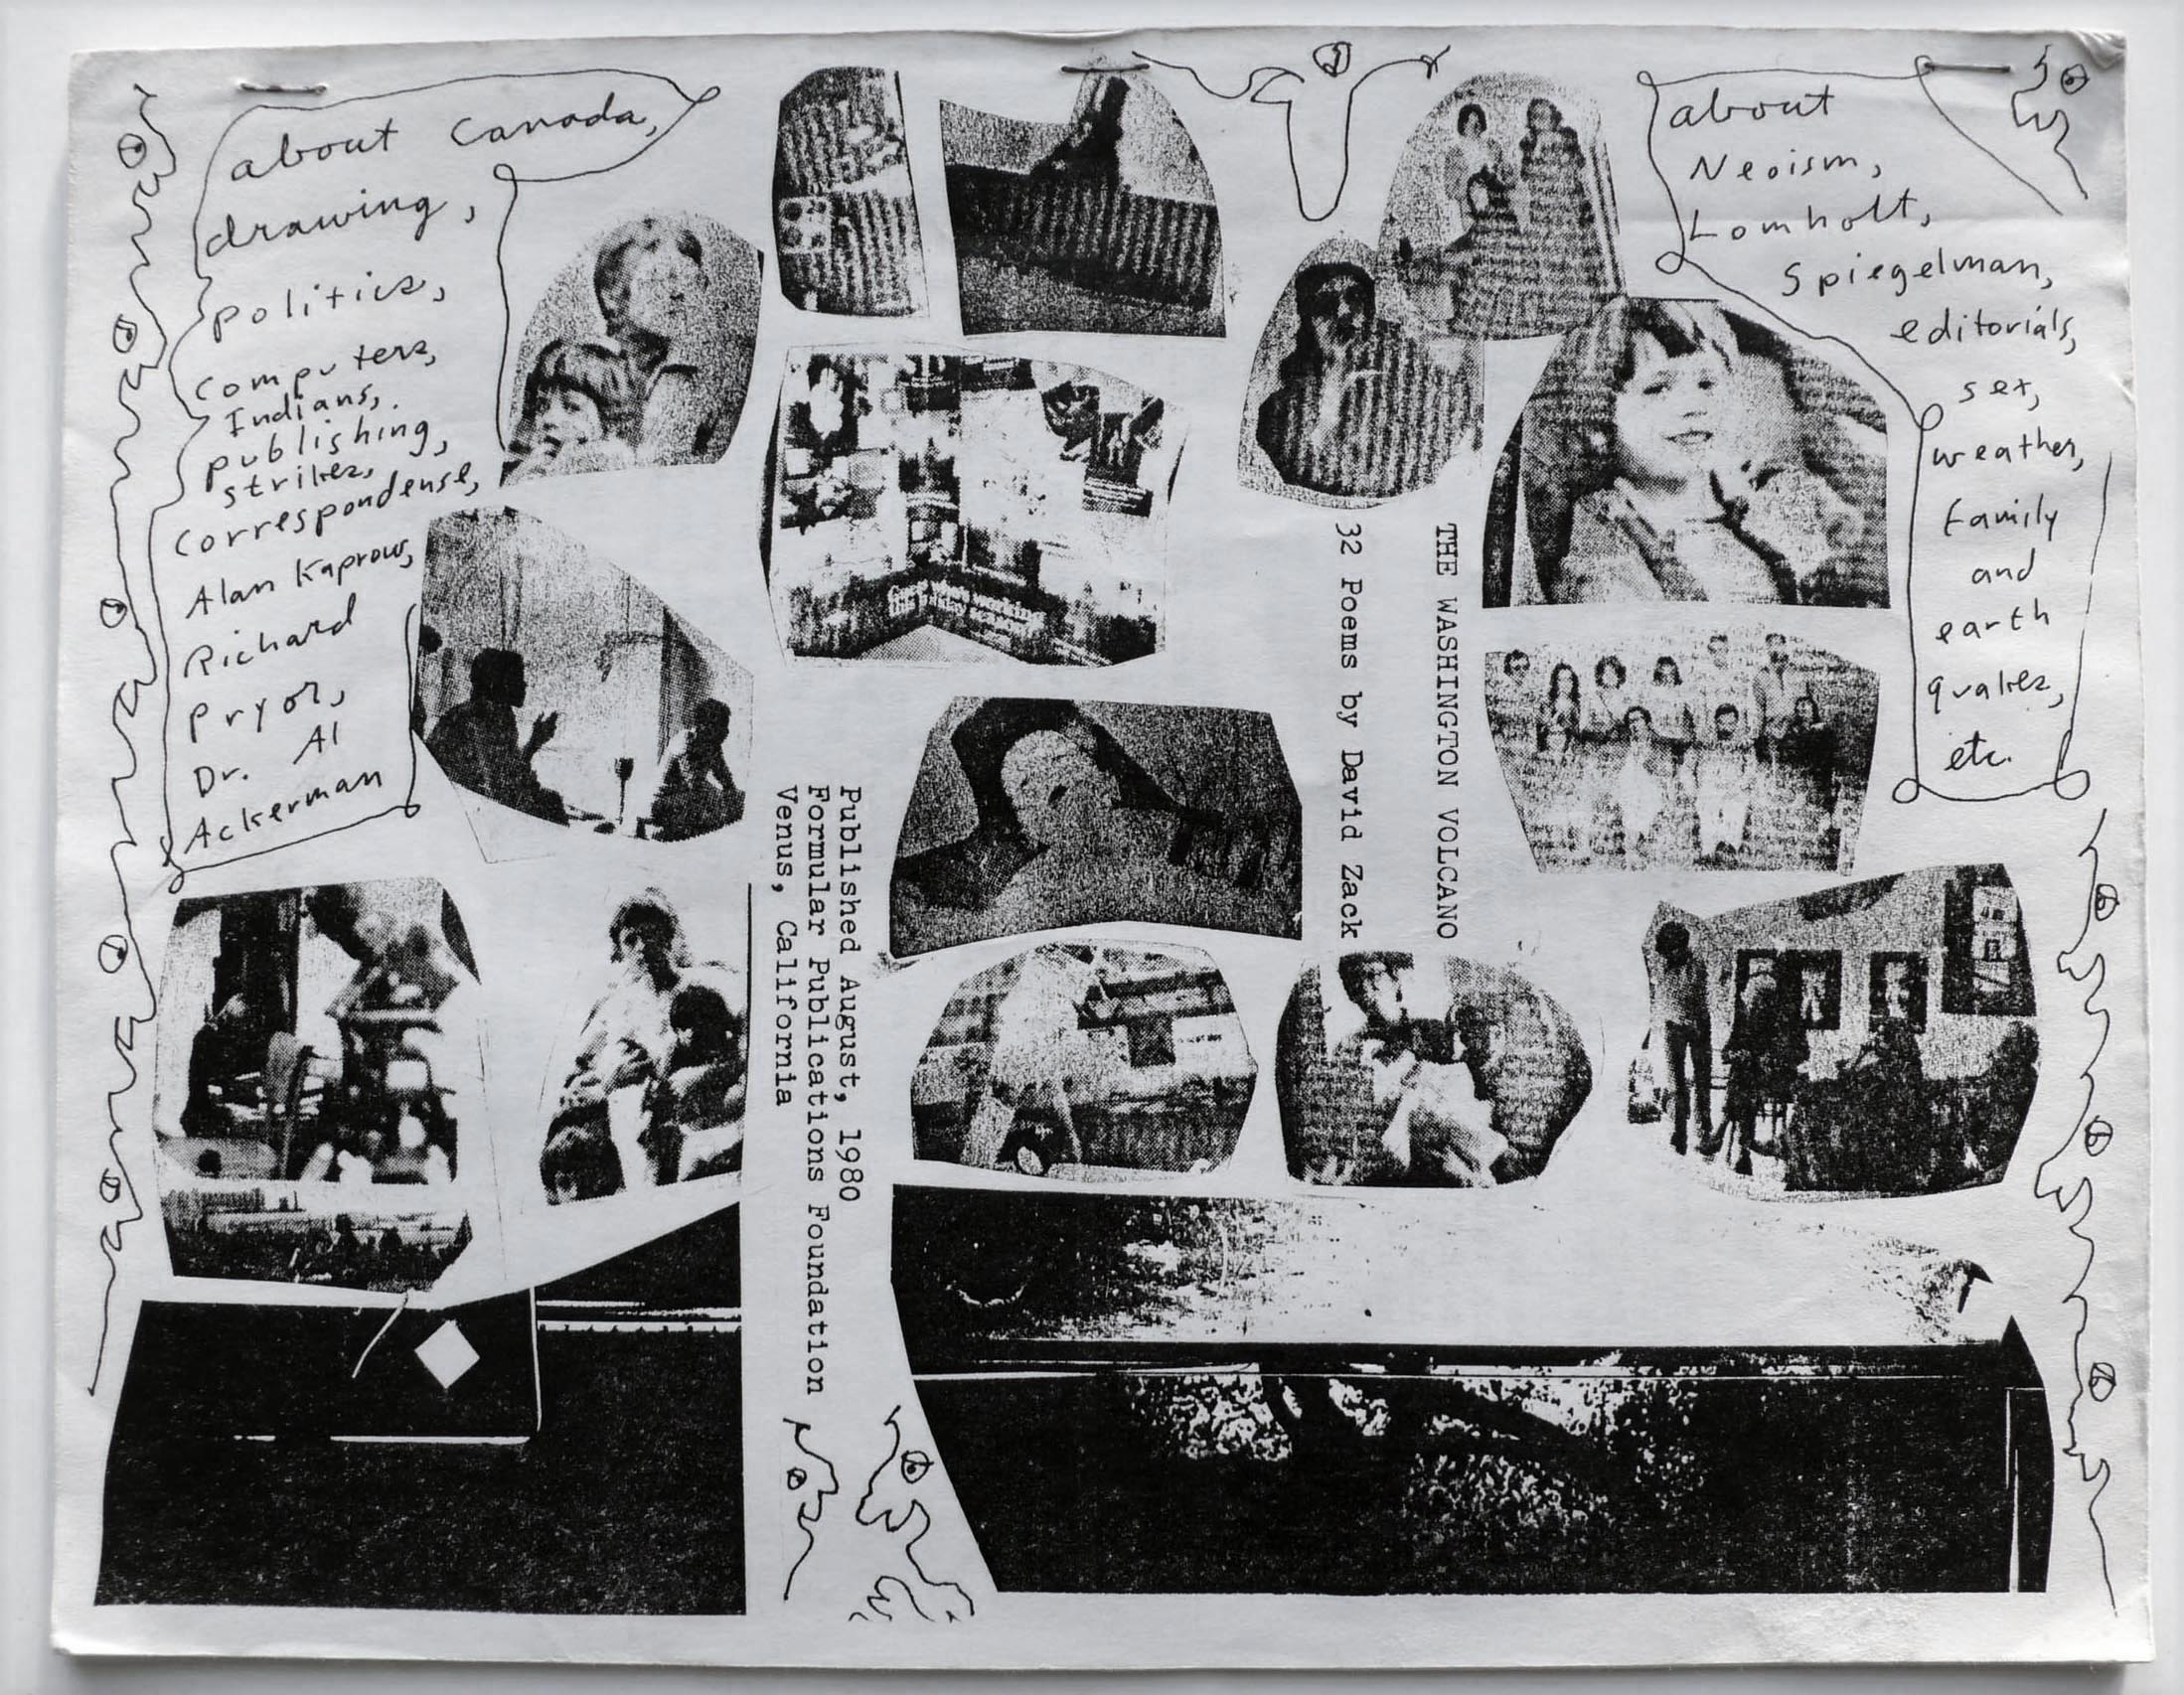 about Canada,
drawing,
politics,
Computers,
Indians,
publishing,
strikes,
Correspondense,
Alan Kaprow,
Richard
Pryor,
Dr. Al
Ackerman
THE WASHINGTON VOLCANO
32 Poems by David Zack
Published August, 1980
Formular Publications Foundation
Venus, California
about
Neoism,
Lomholt,
Spiegelman,
editorials,
sex,
weather,
family
and
earth
quakes,
etc.